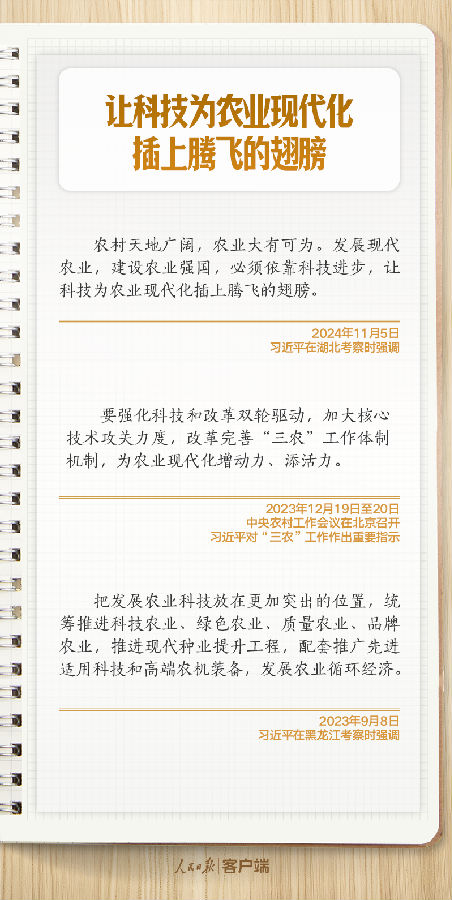 让科技为农业现代化
插上腾飞的翅膀
农村天地广阔，农业大有可为。发展现代
农业，建设农业强国，必须依靠科技进步，让
科技为农业现代化插上腾飞的翅膀。
2024年11月5日
习近平在湖北考察时强调
要强化科技和改革双轮驱动，加大核心
技术攻关力度，改革完善“三农”工作体制
机制，为农业现代化增动力、添活力。
2023年12月19日至20日
中央农村工作会议在北京召开
习近平对“三农”工作作出重要指示
把发展农业科技放在更加突出的位置，统
筹推进科技农业、绿色农业、质量农业、品牌
农业，推进现代种业提升工程，配套推广先进
适用科技和高端农机装备，发展农业循环经济。
2023年9月8日
习近平在黑龙江考察时强调
人民日报 客户端